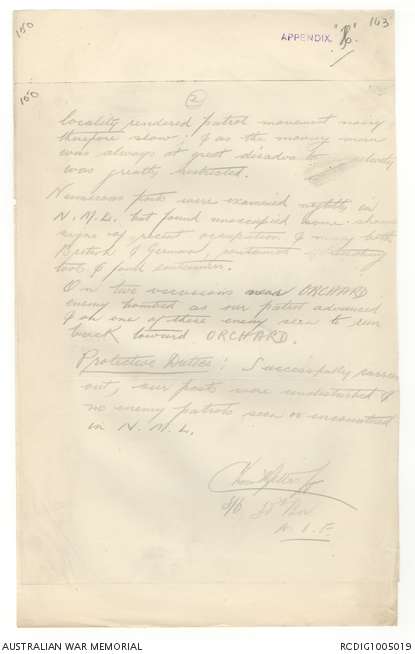 150
APPENDIX.
143
150
2
locality rendered patrol movement noisy
therefore slow; & as the moving man
was always at great
was greatly restricted.
Numerous posts were examined nightly in
N.M.L. but found unoccupied some
signs of recent occupation & many both
British & German,
tools & food containers.
On two occasions near ORCHARD
enemy bombed as our patrol advanced
& on one of these enemy seen to run
back toward ORCHARD.
Protective Duties: Successfully carried
out, our posts were undisturbed &
no enemy patrols seen or encountered
in N.M.L.
A.I.F.
AUSTRALIAN WAR MEMORIAL
RCDIG1005019